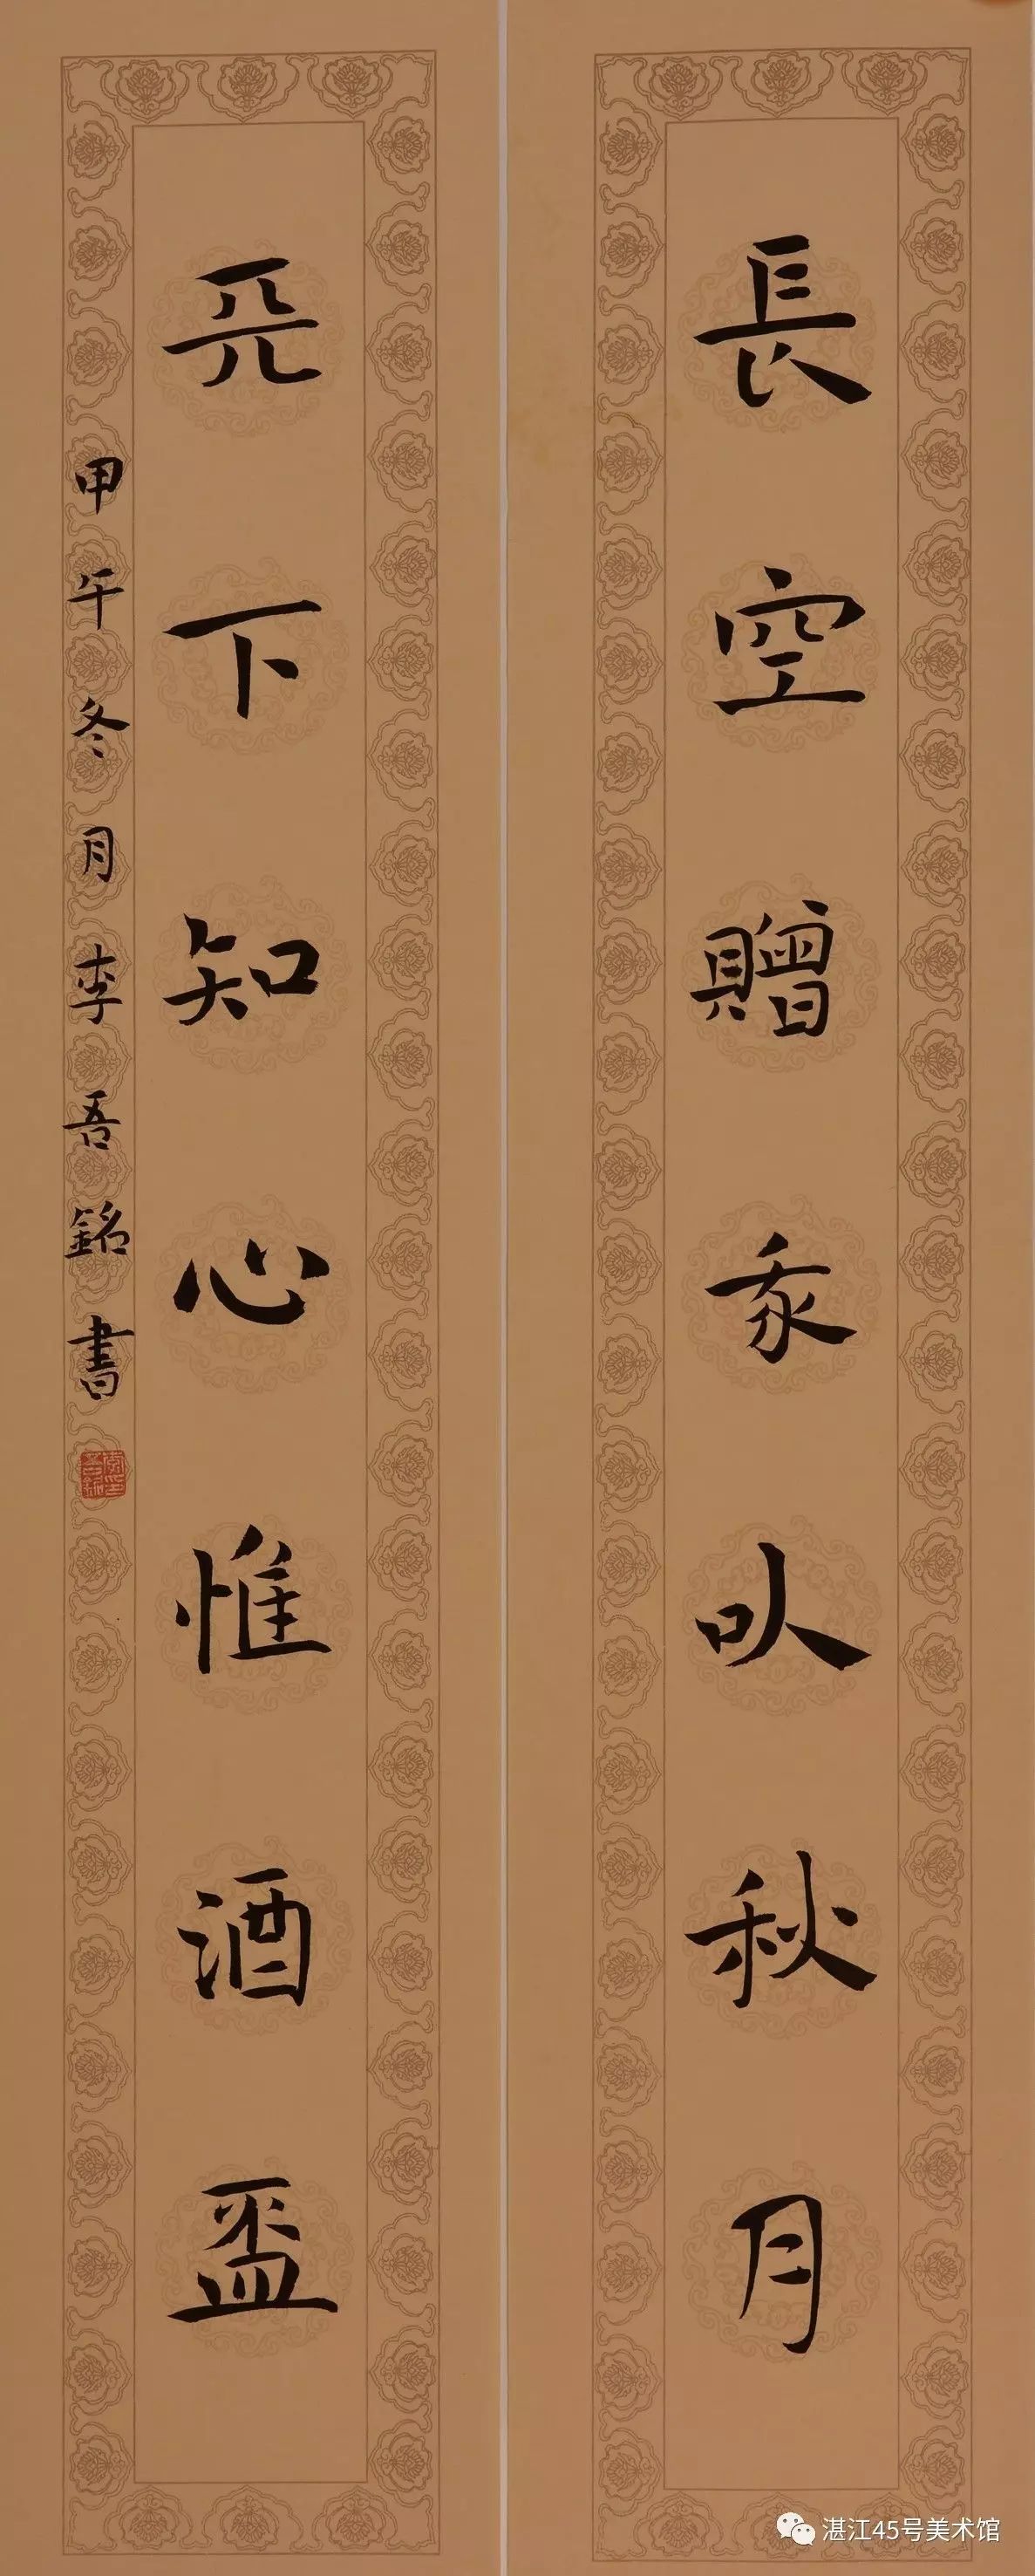 長空贈我㕥秋月
天下知心惟酒盃
甲午冬月李吾銘書
湛江45号美术馆